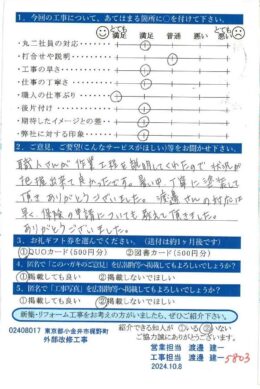 1. 今回の工事について、あてはまる箇所に○を付けて下さい。
とても満足 満足 普通 悪い とても悪い
・丸二社員の対応・・・
・打合せや説明・・・・
・工事の早さ・・・・・
・仕事の丁寧さ・・・・
・職人の仕事ぶり・・・
・後片付け・・・・・・
・期待したイメージとの差・・
・弊社に対する印象・・・
2. ご意見、ご要望(こんなサービスがほしい)等をお聞かせ下さい。
職人さんが作業工程を説明してくれたので状況が
把握出来て良かったです。暑い中、丁寧に塗装して
頂きありがとうございました。渡邉さんの対応は
早く、保険の申請についても教えて頂きました。
ありがとうございました。
3. お礼ギフト券を選んでください。(送付は約1ヶ月後です)
①QUOカード(500円分) ②図書カード(500円分)
4. 匿名で「このハガキのご意見」を広報物等へ掲載してもよろしいでしょうか?
①掲載しても良い ②掲載しないでほしい
5. 匿名で「工事写真」を広報物等へ掲載してもよろしいでしょうか?
①掲載しても良い ②掲載しないでほしい
新築・リフォーム工事をお考えの方がいましたら、ぜひご紹介下さい。
02408017 東京都小金井市梶野町
外部改修工事
紹介できる知人が ①いる ②いない
ご協力誠にありがとうございます。
営業担当 渡邉 建一
工事担当 渡邉 建一
5803
2024.10.8